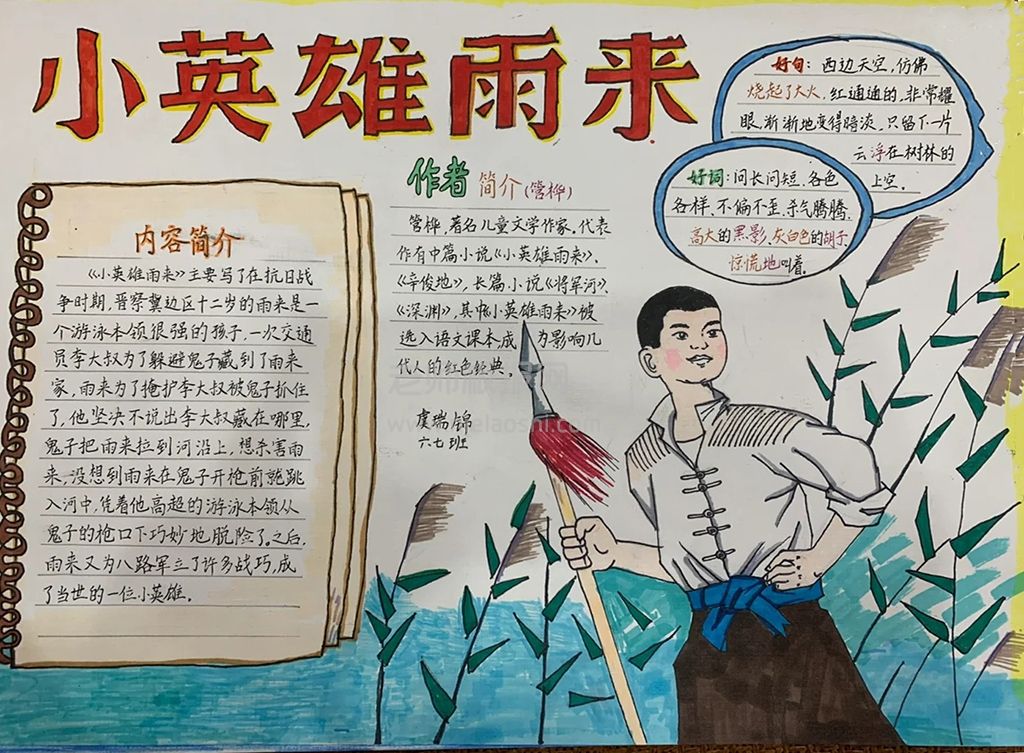 小英雄雨来
好句：西边天空，仿佛
烧起了大火，红通通的，非常耀
眼，渐渐地变得暗淡，只留下一片
云浮在树林的
上空。
好词：问长问短、各色
各样、不偏不歪、杀气腾腾、
高大的黑影、灰白色的胡子、
惊慌地叫着。
作者简介（管桦）
管桦，著名儿童文学作家，代表
作有中篇小说《小英雄雨来》，
《辛俊地》，长篇小说《将军河》，
《深渊》，其中《小英雄雨来》被
选入语文课本，成为影响几
代人的红色经典。
虞瑞锦
六七班
内容简介
《小英雄雨来》主要写了在抗日战
争时期，晋察冀边区十二岁的雨来是一
个游泳本领很强的孩子，一次交通
员李大叔为了躲避鬼子藏到了雨来
家，雨来为了掩护李大叔被鬼子抓住
了，他坚决不说出李大叔藏在哪里，
鬼子把雨来拉到河沿上，想杀害雨
来，没想到雨来在鬼子开枪前就跳
入河中，凭着他高超的游泳本领从
鬼子的枪口下巧妙地脱险了，之后，
雨来又为八路军立了许多战巧，成
了当世的一位小英雄。